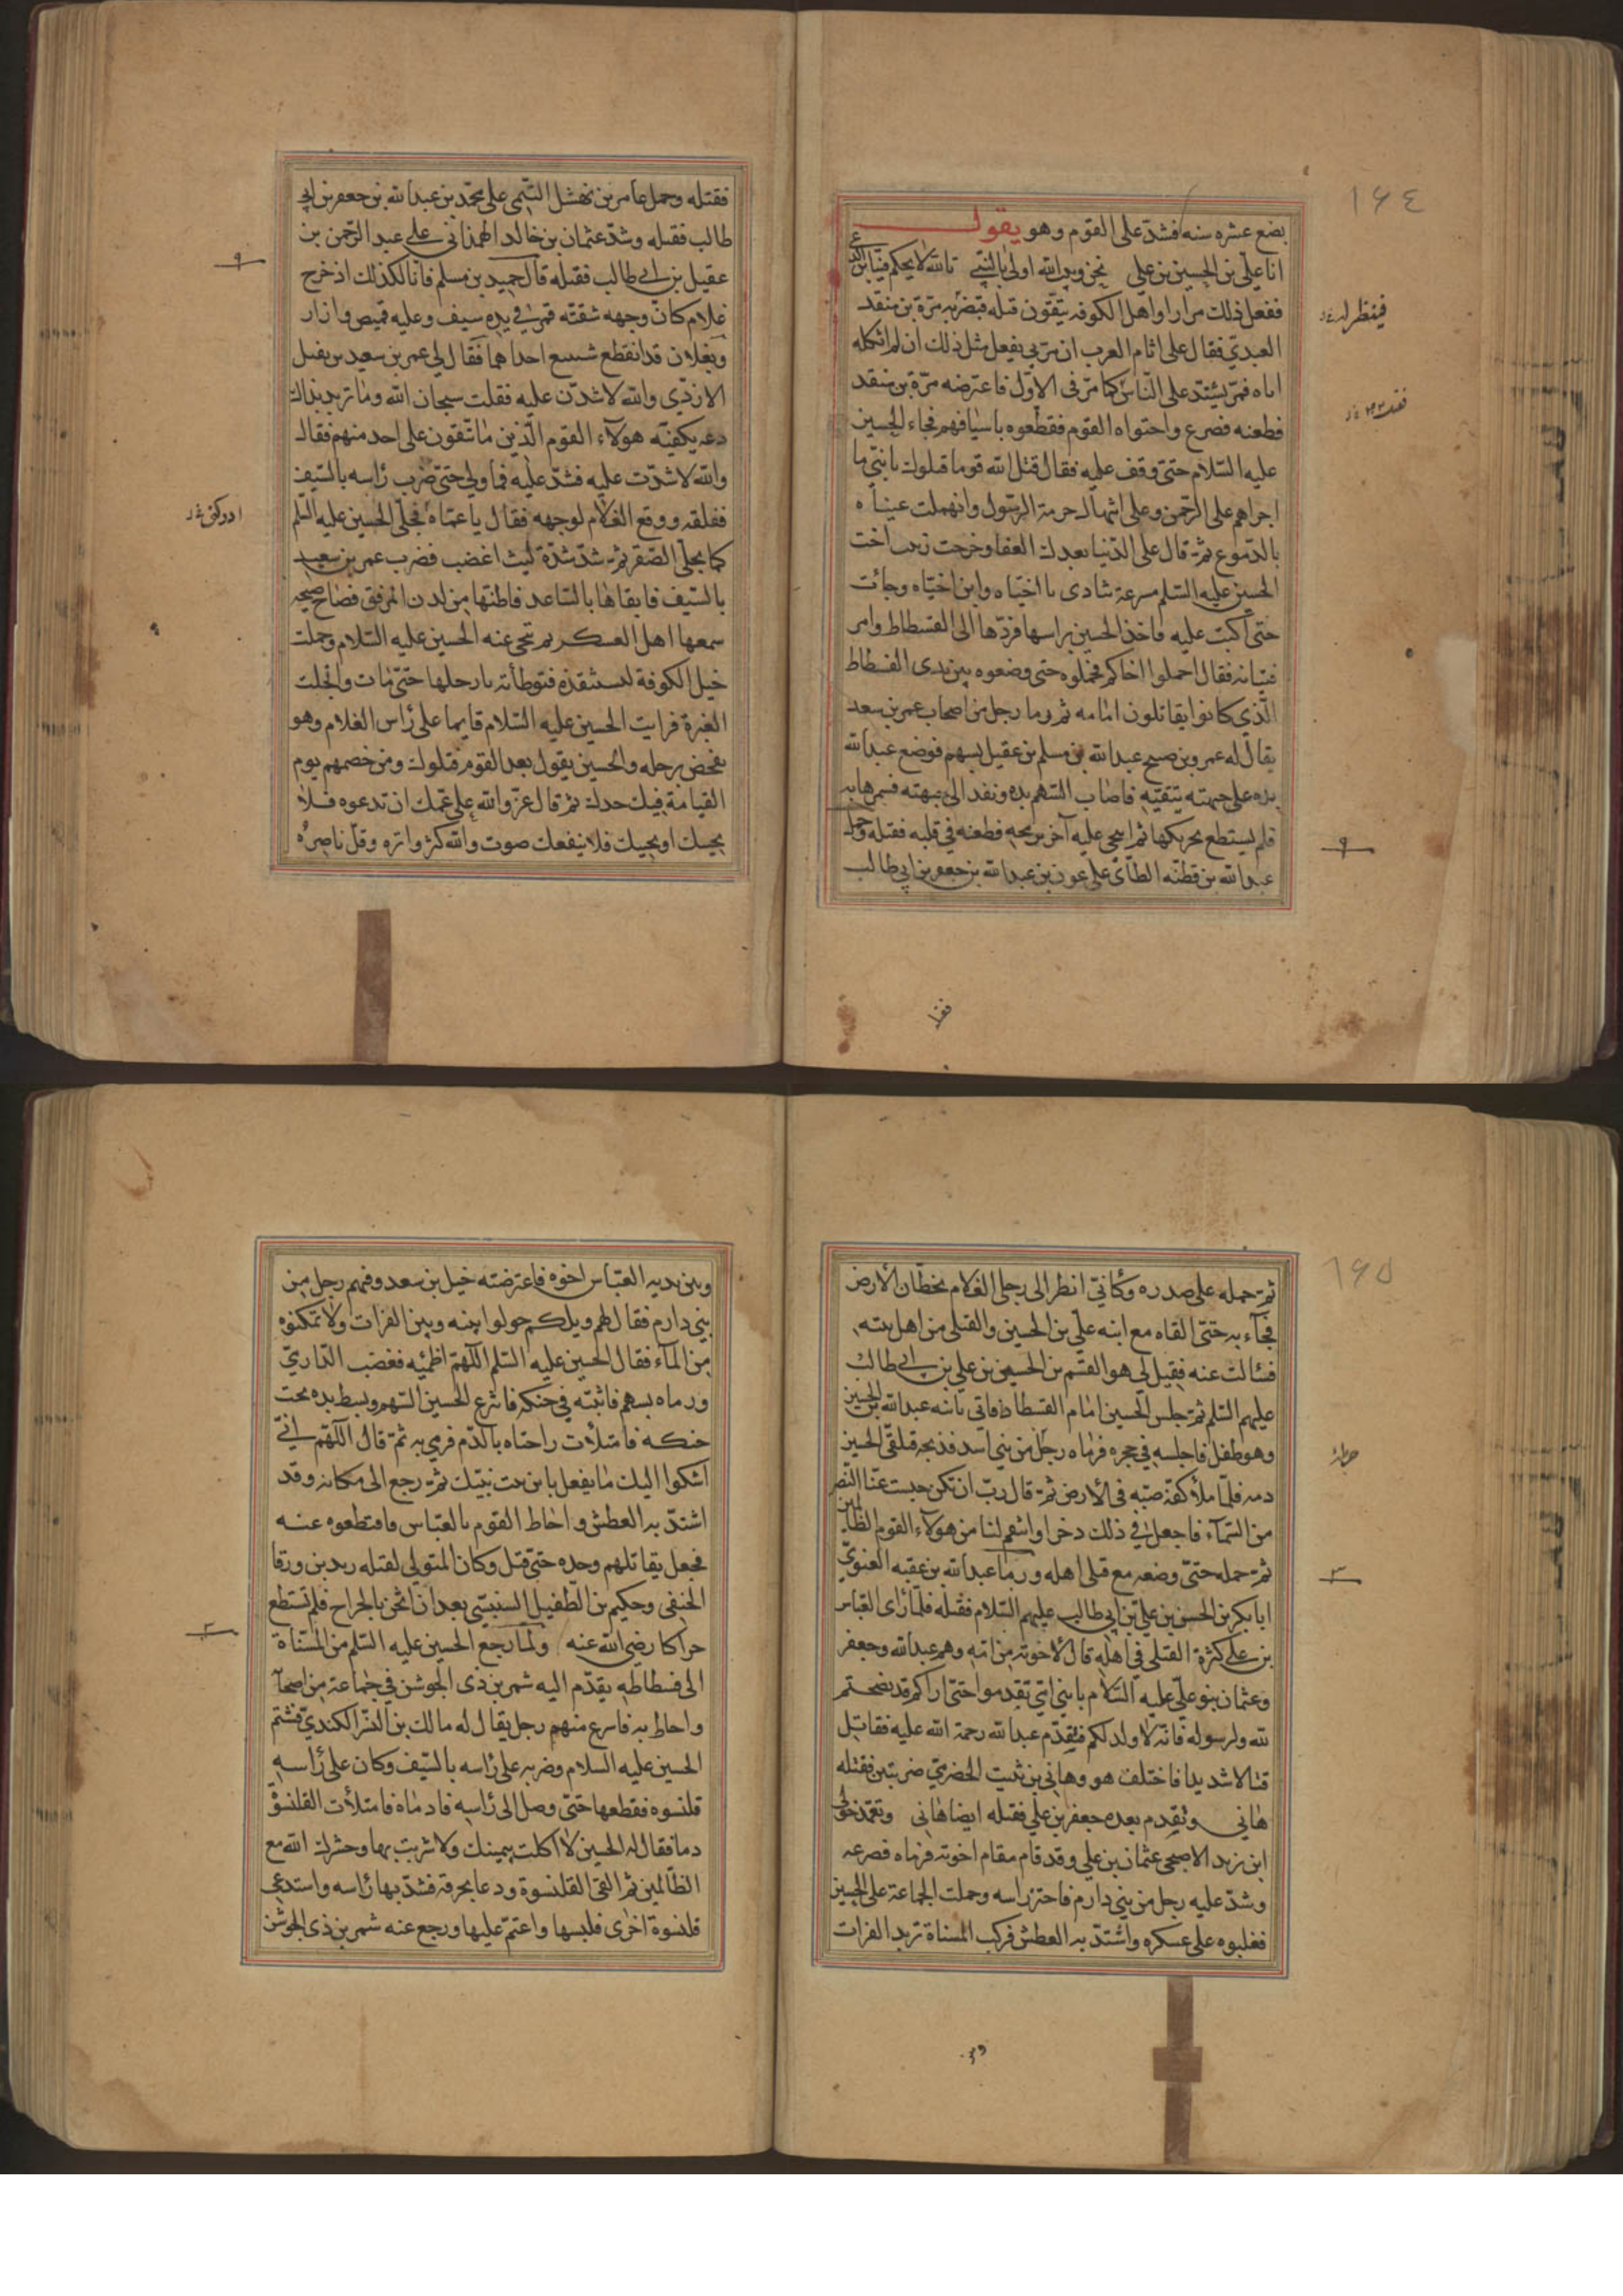 ١٦٤
بضع عشره سنه فشد على القوم وهو يقول
انا علي بن الحسين بن علي نحن وبيت الله اولى بالنبي تالله لا يحكم فينا ابن الدعي
ففعل ذلك مرارا واهل الكوفه يتقون قتله فبصر به مرة بن منقد
العبدي فقال على اثام العرب ان مر بي يفعل مثل ذلك ان لم اثكله
اباه فمر يشتد على الناس كما مر في الاول فاعترضه مرة بن منقد
فطعنه فصرع واحتواه القوم فقطعوه باسيافهم فجاء الحسين
عليه السلام حتى وقف عليه فقال قتل الله قوما قتلوك يا بني ما
اجراهم على الرحمن وعلى انتهاك حرمة الرسول وانهملت عيناه
بالدموع ثم قال على الدنيا بعدك العفا وخرجت زينب اخت
الحسين عليه السلم مسرعة تنادي يا اخياه وابن اخياه وجائت
حتى اكبت عليه فاخذ الحسين براسها فردها الى الفسطاط وامر
فتيانه فقال احملوا اخاكم فحملوه حتى وضعوه بين يدى الفسطاط
الذي كانوا يقاتلون امامه ثم رما رجل من اصحاب عمر بن سعد
يقال له عمرو بن صبيح عبد الله بن مسلم بن عقيل بسهم فوضع عبد الله
يده على جبهته يتقيه فاصاب السهم يده ونفد الى جبهته فسمرها به
فلم يستطع تحريكها ثم انتحى عليه آخر برمحه فطعنه في قلبه فقتله وحمل
عبد الله بن قطنه الطآئى على عون بن عبد الله بن جعفر بن ابي طالب
فينظر له
فقتله
فقتله وحمل عامر بن نهشل التيمى على محمد بن عبد الله بن جعفر بن ابي
طالب فقتله وشد عثمان بن خالد الهمدانى على عبد الرحمن بن
عقيل بن ابي طالب فقتله قال حميد بن مسلم فانا لكذلك اذ خرج
غلام كان وجهه شقته قمر في يده سيف وعليه قميص وازار
ونعلان قد انقطع شسع احداهما فقال لي عمر بن سعيد بن نفيل
الازدي والله لاشدن عليه فقلت سبحان الله وما تريد بذلك
دعه يكفيكه هولآء القوم الذين ما تتقون على احد منهم فقال
والله لاشدن عليه فشد عليه فما ولي حتى ضرب راسه بالسيف
ففلقه ووقع الغلام لوجهه فقال يا عماه فجلى الحسين عليه السلم
كما يجلى الصقر ثم شد شدة ليث اغضب فضرب عمر بن سعيد
بالسيف فاتقاها بالساعد فاطنها من لدن المرفق فصاح صيحة
سمعها اهل العسكر ثم تنحى عنه الحسين عليه السلام وحملت
خيل الكوفة لتستنقذه فتوطأته بارجلها حتى مات وانجلت
الغبرة فرايت الحسين عليه السلام قايما على راس الغلام وهو
يفحص برجله والحسين يقول بعدا لقوم قتلوك ومن خصمهم يوم
القيامة فيك جدك ثم قال عز والله على عمك ان تدعوه فلا
يجيبك او يجيبك فلا ينفعك صوت والله كثر واتره وقل ناصره
١٦٥
ثم حمله على صدره وكأني انظر الى رجلى الغلام يخطان الارض
فجآء به حتى القاه مع ابنه علي بن الحسين والقتلى من اهل بيته
فسئالت عنه فقيل لي هو القسم بن الحسين بن علي بن ابي طالب
عليهم السلم ثم جلس الحسين امام الفسطاط فاتي بابنه عبد الله بن الحسين
وهو طفل فاجلسه في حجره فرماه رجل من بني اسد فذبحه فتلقى الحسين
دمه فلما ملأ كفه صبه في الارض ثم قال رب ان تكن حبست عنا النصر
من السمآء فاجعل في ذلك دخرا وانتقم لنا من هولاء القوم الظالمين
ثم حمله حتى وضعه مع قتلى اهله ورما عبد الله بن عقبه الغنوي
ابا بكر بن الحسن بن علي بن ابي طالب عليهم السلام فقتله فلما رأى العباس
بن على كثرة القتلى في اهله قال لاخوته من امه وهم عبد الله وجعفر
وعثمان بنو علي عليه السلام يا بني امي تقدموا حتى اراكم قد نصحتم
لله ولرسوله فانه لا ولد لكم فتقدم عبد الله رحمة الله عليه فقاتل
قتالا شديدا فاختلف هو وهاني بن ثبيت الحضرمي ضربتين فقتله
هاني وتقدم بعده جعفر بن علي فقتله ايضا هاني وتعمد خولي
ابن يزيد الاصبحي عثمان بن علي وقد قام مقام اخوته فرماه فصرعه
وشد عليه رجل من بني دارم فاحتز راسه وحملت الجماعة على الحسين
فغلبوه على عسكره واشتد به العطش فركب المسناة تريد الفرات
وبين يديه العباس اخوه فاعترضته خيل بن سعد وفيهم رجل من
بني دارم فقال لهم ويلكم حولوا بينه وبين الفرات ولا تمكنوه
من المآء فقال الحسين عليه السلم اللهم اظمئه فغضب الدارمي
ورماه بسهم فاثبته في حنكه فانتزع الحسين السهم وبسط يده تحت
حنكه فامتلأت راحتاه بالدم فرمى به ثم قال اللهم اني
اشكوا اليك ما يفعل بابن بنت نبيك ثم رجع الى مكانه وقد
اشتد به العطش واحاط القوم بالعباس فاقتطعوه عنه
فجعل يقاتلهم وحده حتى قتل وكان المتولى لقتله زيد بن ورقا
الحنفى وحكيم بن الطفيل السنبسي بعد ان اثخن بالجراح فلم تستطع
حراكا رضي الله عنه ولما رجع الحسين عليه السلم من المسناة
الى فسطاطه تقدم اليه شمر بن ذى الجوشن في جماعة من اصحابه
واحاط به فاسرع منهم رجل يقال له مالك بن النسر الكندي فشتم
الحسين عليه السلام وضربه على راسه بالسيف وكان على راسه
قلنسوه فقطعها حتى وصل الى راسه فادماه فامتلأت القلنسوة
دما فقال له الحسين لا اكلت بيمينك ولا شربت بها وحشرك الله مع
الظالمين ثم القى القلنسوة ودعا بخرقة فشد بها راسه واستدعى
قلنسوة اخرى فلبسها واعتم عليها ورجع عنه شمر بن ذى الجوشن